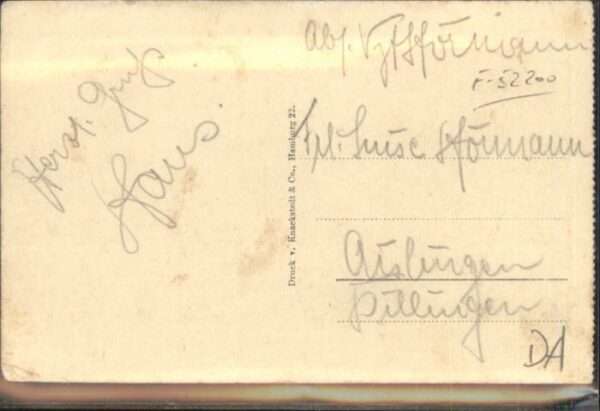 Herzl. Gruß
Hans.
Druck v. Knackstedt & Co., Hamburg 22.
Abs.
F-52200
Frl. Luise Hörmann
Aislingen
Dillingen
DA